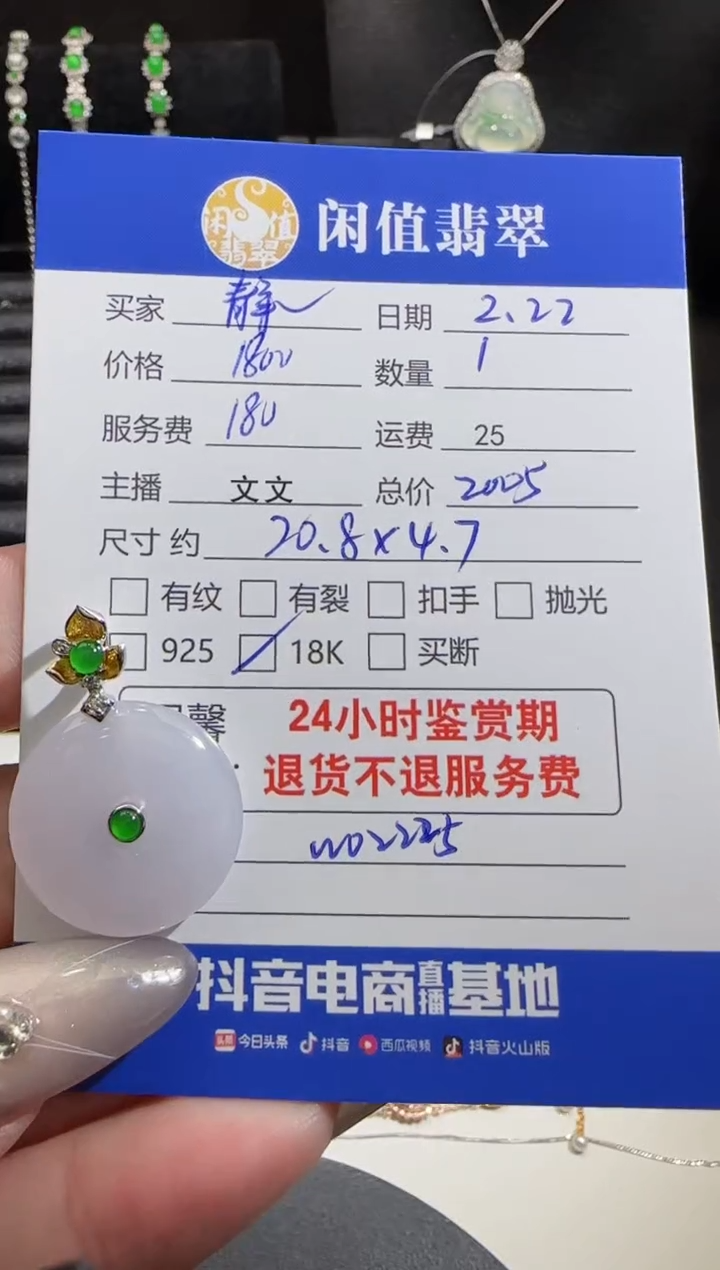 闲值翡翠 闲值翡翠
买家 静 日期 2.22
价格 1800 数量 1
服务费 180 运费 25
主播 文文 总价 2005
尺寸 约 20.8×4.7
有纹 有裂 扣手 抛光
925 18K 买断
馨 24小时鉴赏期
退货不退服务费
抖音电商直播基地
头条 今日头条 抖音 西瓜视频 抖音火山版